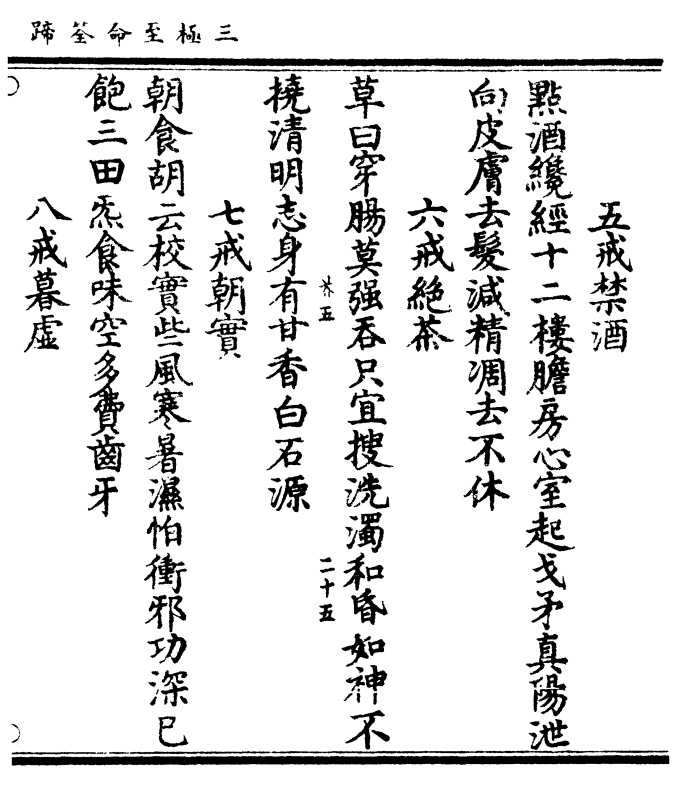 三極至命筌蹄
五戒禁酒
點酒纔經十二樓膽房心室起戈矛真陽泄
向皮膚去髮減精凋去不休
六戒絕茶
草曰穿腸莫强吞只宜搜洗濁和昏如神不
芥五
二十五
撓清明志身有甘香白石源
七戒朝實
朝食胡云校實些風寒暑濕怕衝邪功深已
飽三田炁食味空多費齒牙
八戒暮虛